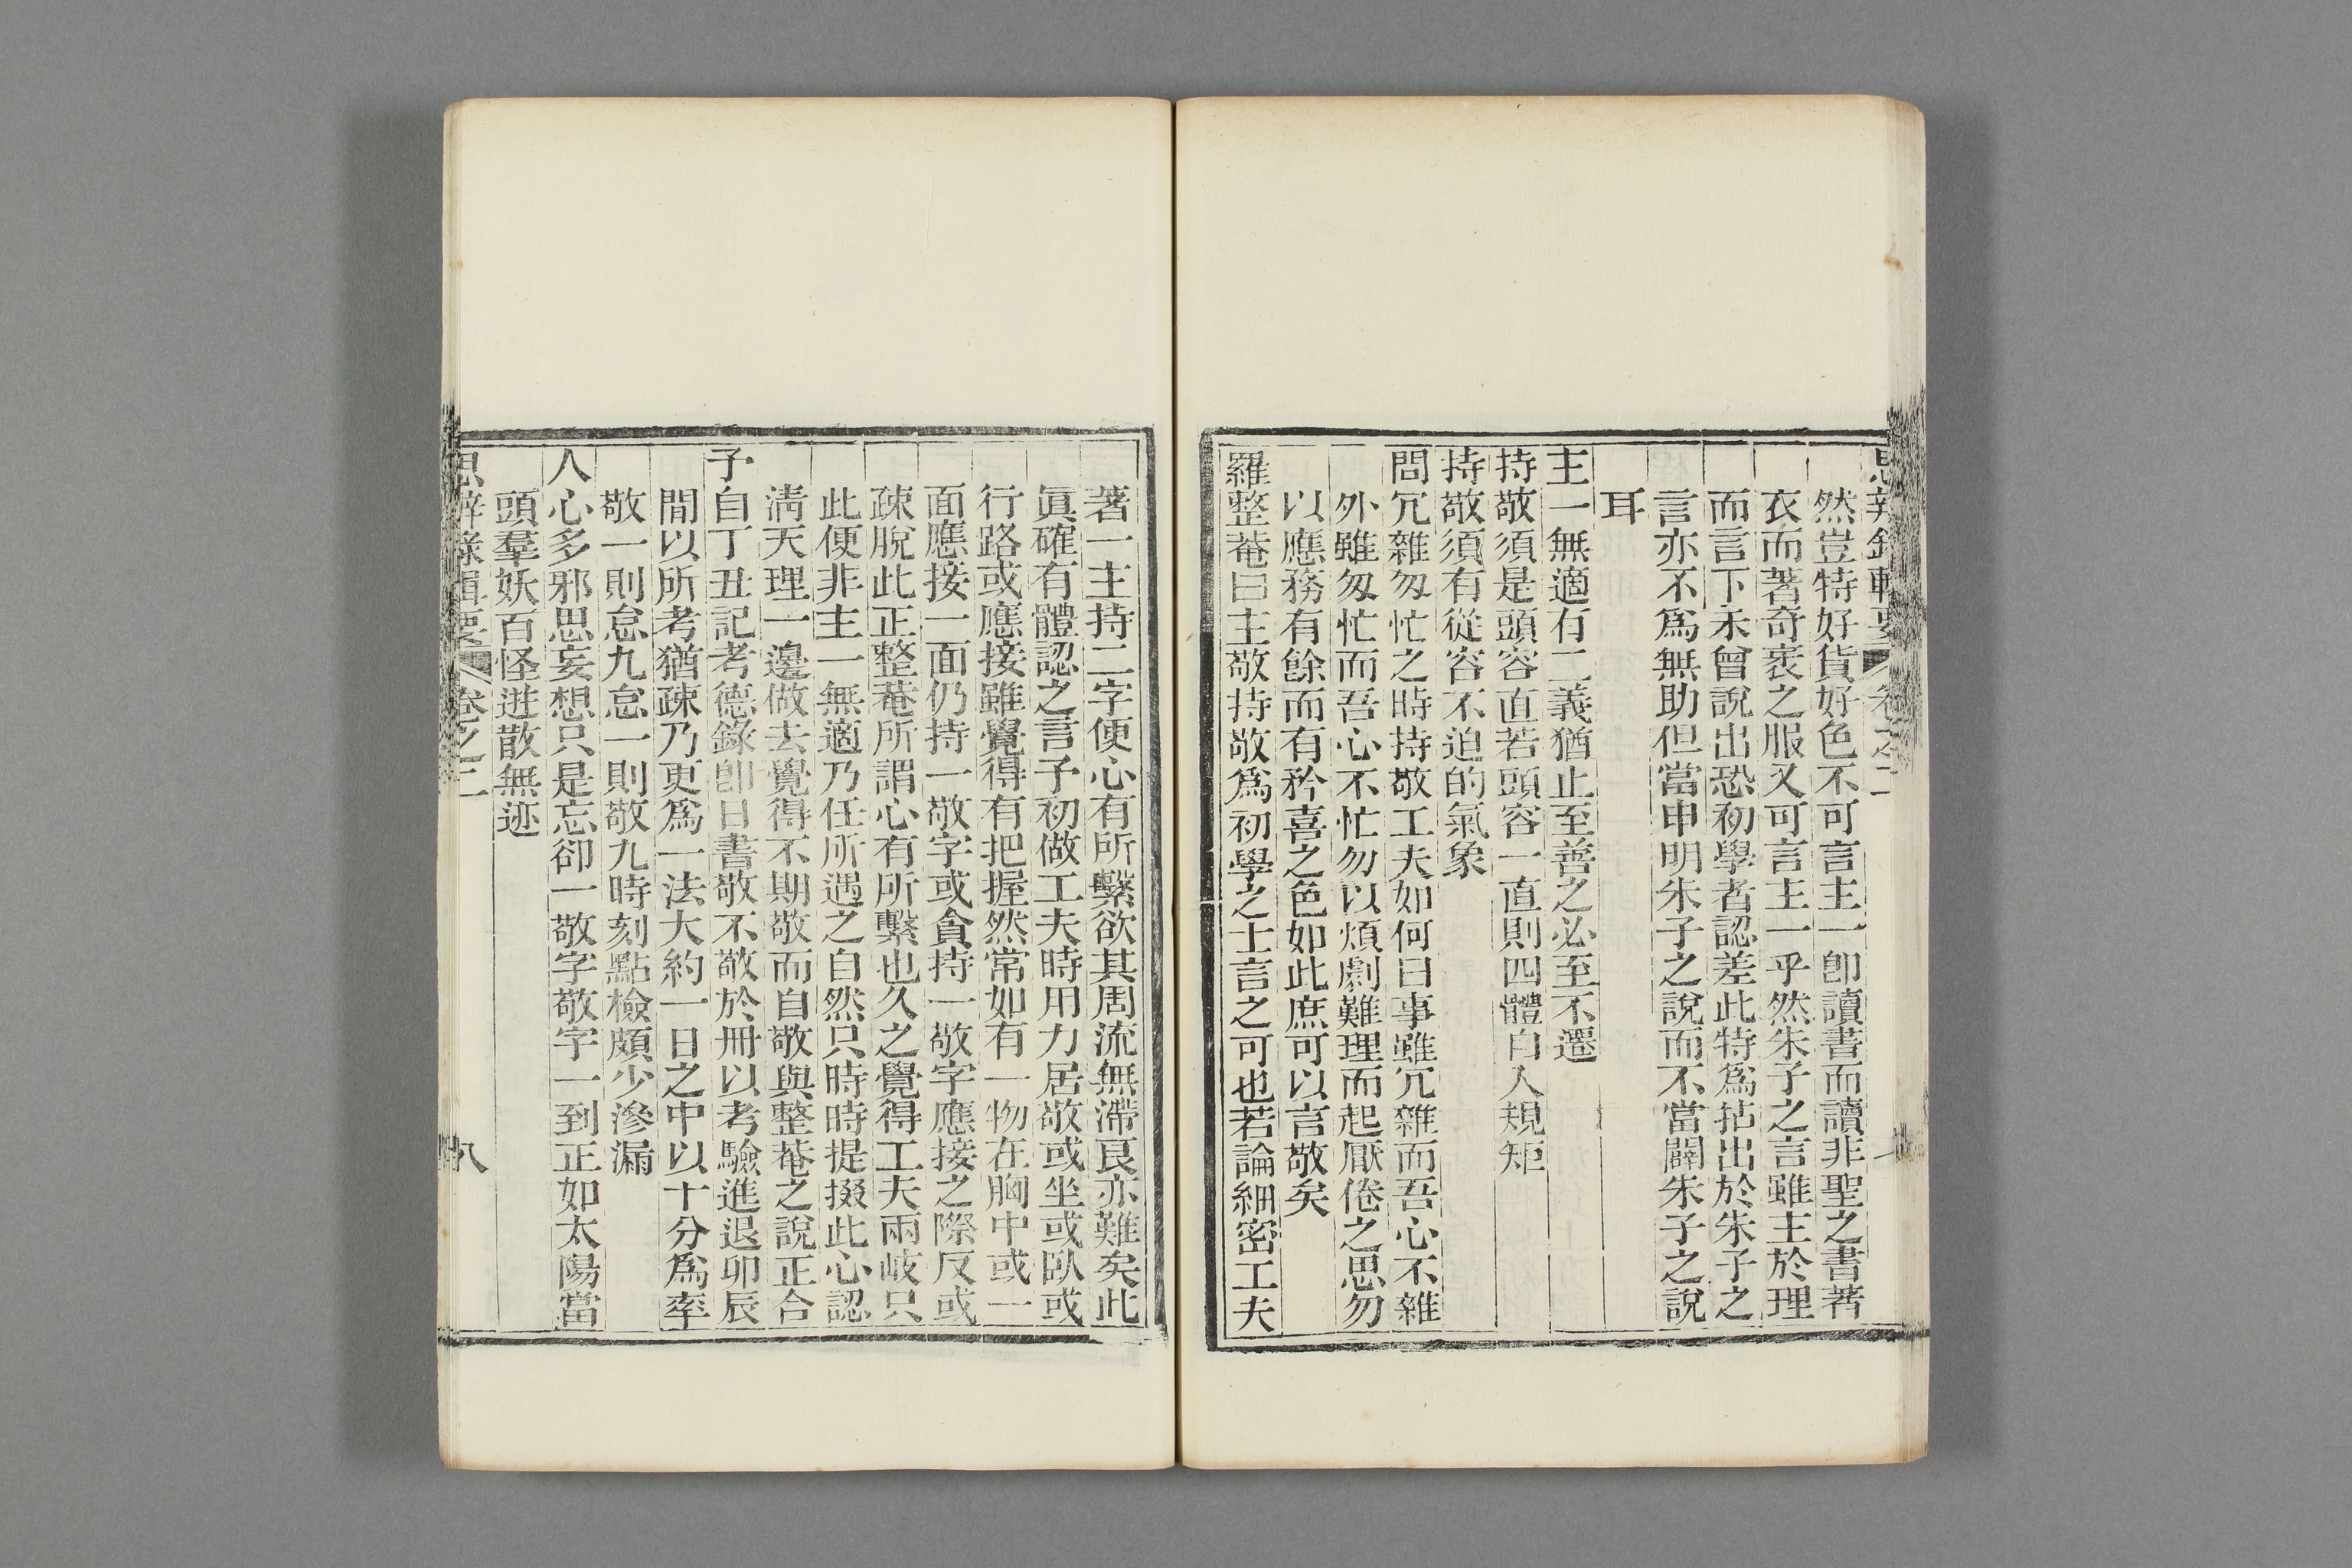 思辨錄輯要 卷之二
然豈特好貨好色不可言主一卽讀書而讀非聖之書著
衣而著奇衺之服又可言主一乎然朱子之言雖主於理
而言下未曾說出恐初學者認差此特爲拈出於朱子之
言亦不爲無助但當申明朱子之說而不當闢朱子之說
耳
主一無適有二義猶止至善之必至不遷
持敬須是頭容直若頭容一直則四體自入規矩
持敬須有從容不迫的氣象
問冗雜匆忙之時持敬工夫如何曰事雖冗雜而吾心不雜
外雖匆忙而吾心不忙勿以煩劇難理而起厭倦之思勿
以應務有餘而有矜喜之色如此庶可以言敬矣
羅整菴曰主敬持敬爲初學之士言之可也若論細密工夫
著一主持二字便心有所繫欲其周流無滯良亦難矣此
眞確有體認之言予初做工夫時用力居敬或坐或臥或
行路或應接雖覺得有把握然常如有一物在胸中或一
面應接一面仍持一敬字或貪持一敬字應接之際反或
疎脫此正整菴所謂心有所繫也久之覺得工夫兩岐只
此便非主一無適乃任所遇之自然只時時提掇此心認
淸天理一邊做去覺得不期敬而自敬與整菴之說正合
予自丁丑記考德錄卽日書敬不敬於冊以考驗進退卯辰
間以所考猶疎乃更爲一法大約一日之中以十分爲率
敬一則怠九怠一則敬九時刻點檢頗少滲漏
人心多邪思妄想只是忘卻一敬字敬字一到正如太陽當
頭羣妖百怪迸散無迹
思辨錄輯要 卷之二 八